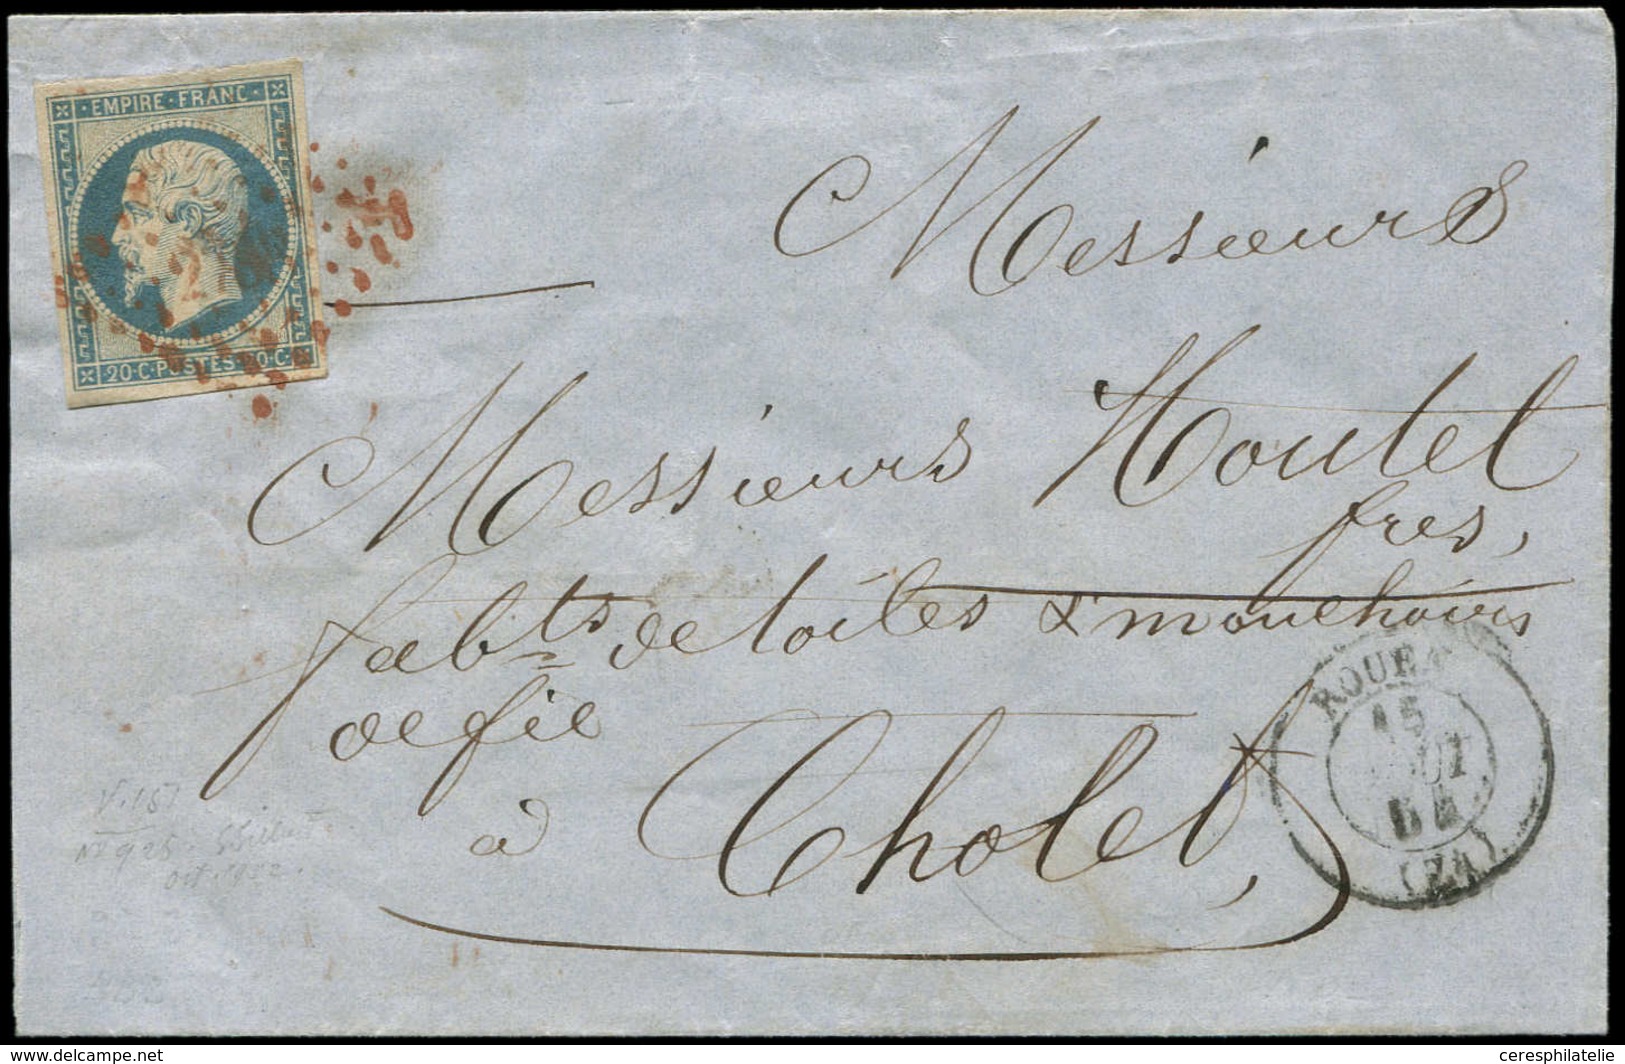 EMPIRE · FRANC ·
20 · C · POSTES · 20 · C ·
Messieurs
Messieurs Houtet
fres,
fabts de toiles & mouchoirs
de fil
à Cholet,
ROUEN
15
AOUT
54
(74)
V. 151
N° 926.
Oct. 1952.
delcampe.net
ceresphilatelie